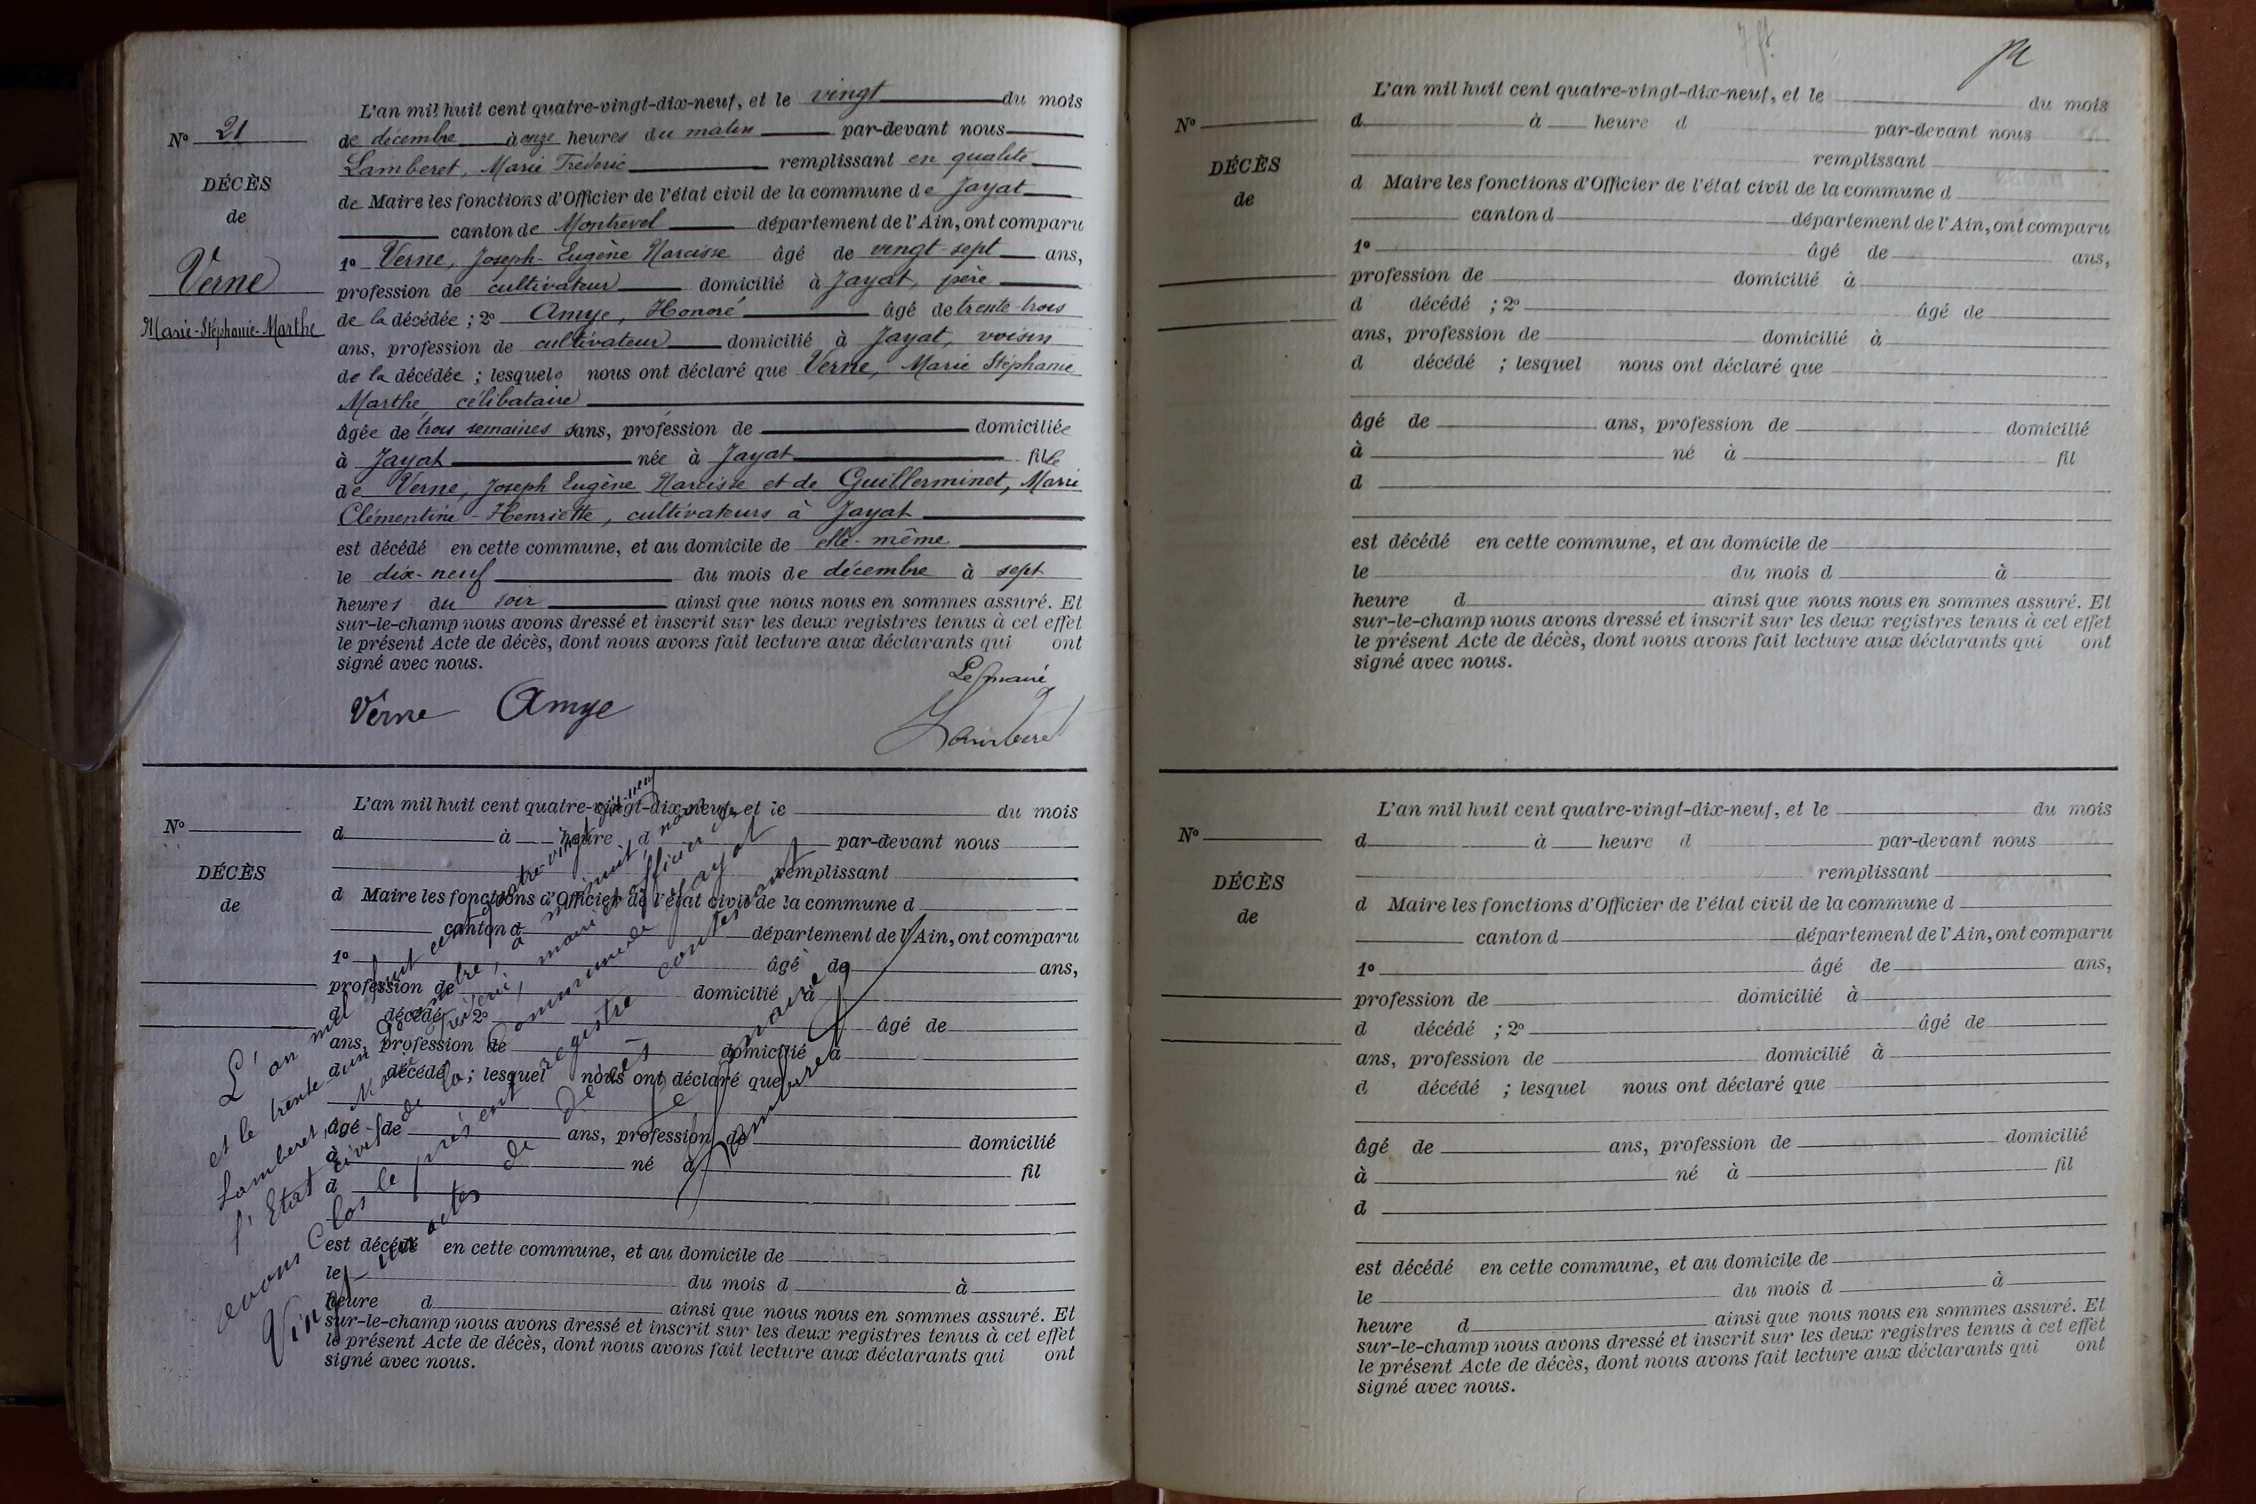 N° 21
DÉCÈS
de
Verne
Marie-Stéphanie-Marthe
L'an mil huit cent quatre-vingt-dix-neuf, et le vingt du mois
de décembre à onze heures du matin par-devant nous
Lamberet, Marie Frédéric remplissant en qualité
de Maire les fonctions d'Officier de l'état civil de la commune de Jayat
canton de Montrevel département de l'Ain, ont comparu
1° Verne, Joseph-Eugène Narcisse âgé de vingt-sept ans,
profession de cultivateur domicilié à Jayat, père
de la décédée ; 2° Amye, Honoré âgé de trente-trois
ans, profession de cultivateur domicilié à Jayat, voisin
de la décédée ; lesquels nous ont déclaré que Verne, Marie Stéphanie
Marthe, célibataire
âgée de trois semaines sans, profession de domiciliée
à Jayat née à Jayat fille
de Verne, Joseph Eugène Narcisse et de Guillerminet, Marie
Clémentine-Henriette, cultivateurs à Jayat
est décédé en cette commune, et au domicile de elle-même
le dix-neuf du mois de décembre à sept
heures du soir ainsi que nous nous en sommes assuré. Et
sur-le-champ nous avons dressé et inscrit sur les deux registres tenus à cet effet
le présent Acte de décès, dont nous avons fait lecture aux déclarants qui ont
signé avec nous.
Le maire
Verne Amye Lamberet
N°
DÉCÈS
de
L'an mil huit cent quatre-vingt-dix-neuf, et le du mois
d à heure d par-devant nous
remplissant
d Maire les fonctions d'Officier de l'état civil de la commune d
canton d département de l'Ain, ont comparu
1° âgé de ans,
profession de domicilié à
d décédé ; 2° âgé de
ans, profession de domicilié à
d décédé ; lesquel nous ont déclaré que
âgé de ans, profession de domicilié
à né à fil
d
est décédé en cette commune, et au domicile de
le du mois d à
heure d ainsi que nous nous en sommes assuré. Et
sur-le-champ nous avons dressé et inscrit sur les deux registres tenus à cet effet
le présent Acte de décès, dont nous avons fait lecture aux déclarants qui ont
signé avec nous.
L'an mil huit cent quatre-vingt-dix-neuf
et le trente-un décembre, à minuit, nous
Lamberet, Marie Frédéric, maire officier de
l'Etat civil de la commune de Jayat
avons clos le présent registre contenant
Vingt-un actes de décès
Le maire
Lamberet
L'an mil huit cent quatre-vingt-dix-neuf, et le du mois
N°
d à heure d par-devant nous
remplissant
DÉCÈS
de
d Maire les fonctions d'Officier de l'état civil de la commune d
canton d département de l'Ain, ont comparu
1° âgé de ans,
profession de domicilié à
d décédé ; 2° âgé de
ans, profession de domicilié à
d décédé ; lesquel nous ont déclaré que
âgé de ans, profession de domicilié
à né à fil
d
est décédé en cette commune, et au domicile de
le du mois d à
heure d ainsi que nous nous en sommes assuré. Et
sur-le-champ nous avons dressé et inscrit sur les deux registres tenus à cet effet
le présent Acte de décès, dont nous avons fait lecture aux déclarants qui ont
signé avec nous.
L'an mil huit cent quatre-vingt-dix-neuf, et le du mois
N°
d à heure d par-devant nous
remplissant
DÉCÈS
de
d Maire les fonctions d'Officier de l'état civil de la commune d
canton d département de l'Ain, ont comparu
1° âgé de ans,
profession de domicilié à
d décédé ; 2° âgé de
ans, profession de domicilié à
d décédé ; lesquel nous ont déclaré que
âgé de ans, profession de domicilié
à né à fil
d
est décédé en cette commune, et au domicile de
le du mois d à
heure d ainsi que nous nous en sommes assuré. Et
sur-le-champ nous avons dressé et inscrit sur les deux registres tenus à cet effet
le présent Acte de décès, dont nous avons fait lecture aux déclarants qui ont
signé avec nous.